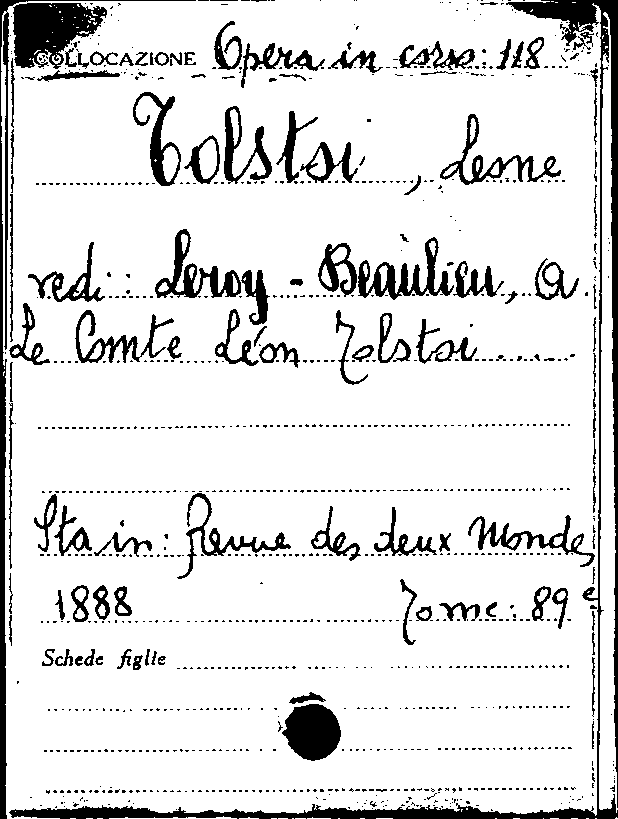 COLLOCAZIONE Opera in corso: 118
Tolstoi, Leone
vedi: Leroy - Beaulieu, A.
Le Comte Léon Tolstoi.....
Sta in: Revue des deux Mondes
1888 Tome: 89e
Schede figlie